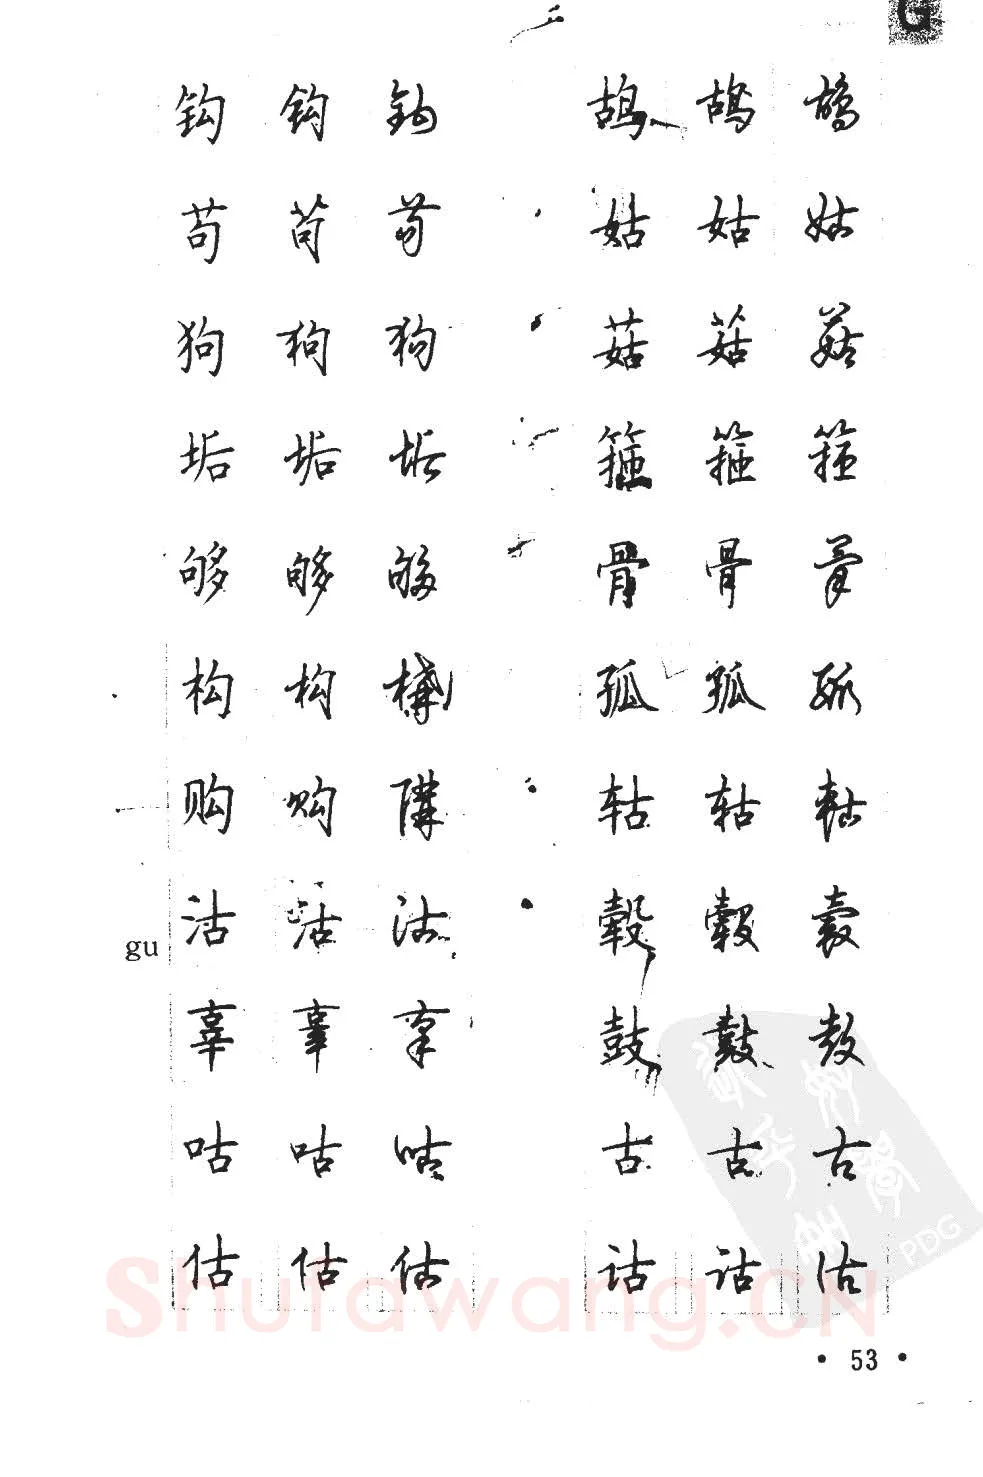 G
钩 钩 钩 鸪 鸪 鸪
苟 苟 苟 姑 姑 姑
狗 狗 狗 菇 菇 菇
垢 垢 垢 箍 箍 箍
够 够 够 骨 骨 骨
构 构 構 孤 孤 孤
购 购 購 轱 轱 轱
gu 沽 沽 沽 毂 毂 毂
辜 辜 辜 鼓 鼓 鼓
咕 咕 咕 古 古 古
估 估 估 诂 诂 诂
Shufawang.CN
PDG
• 53 •